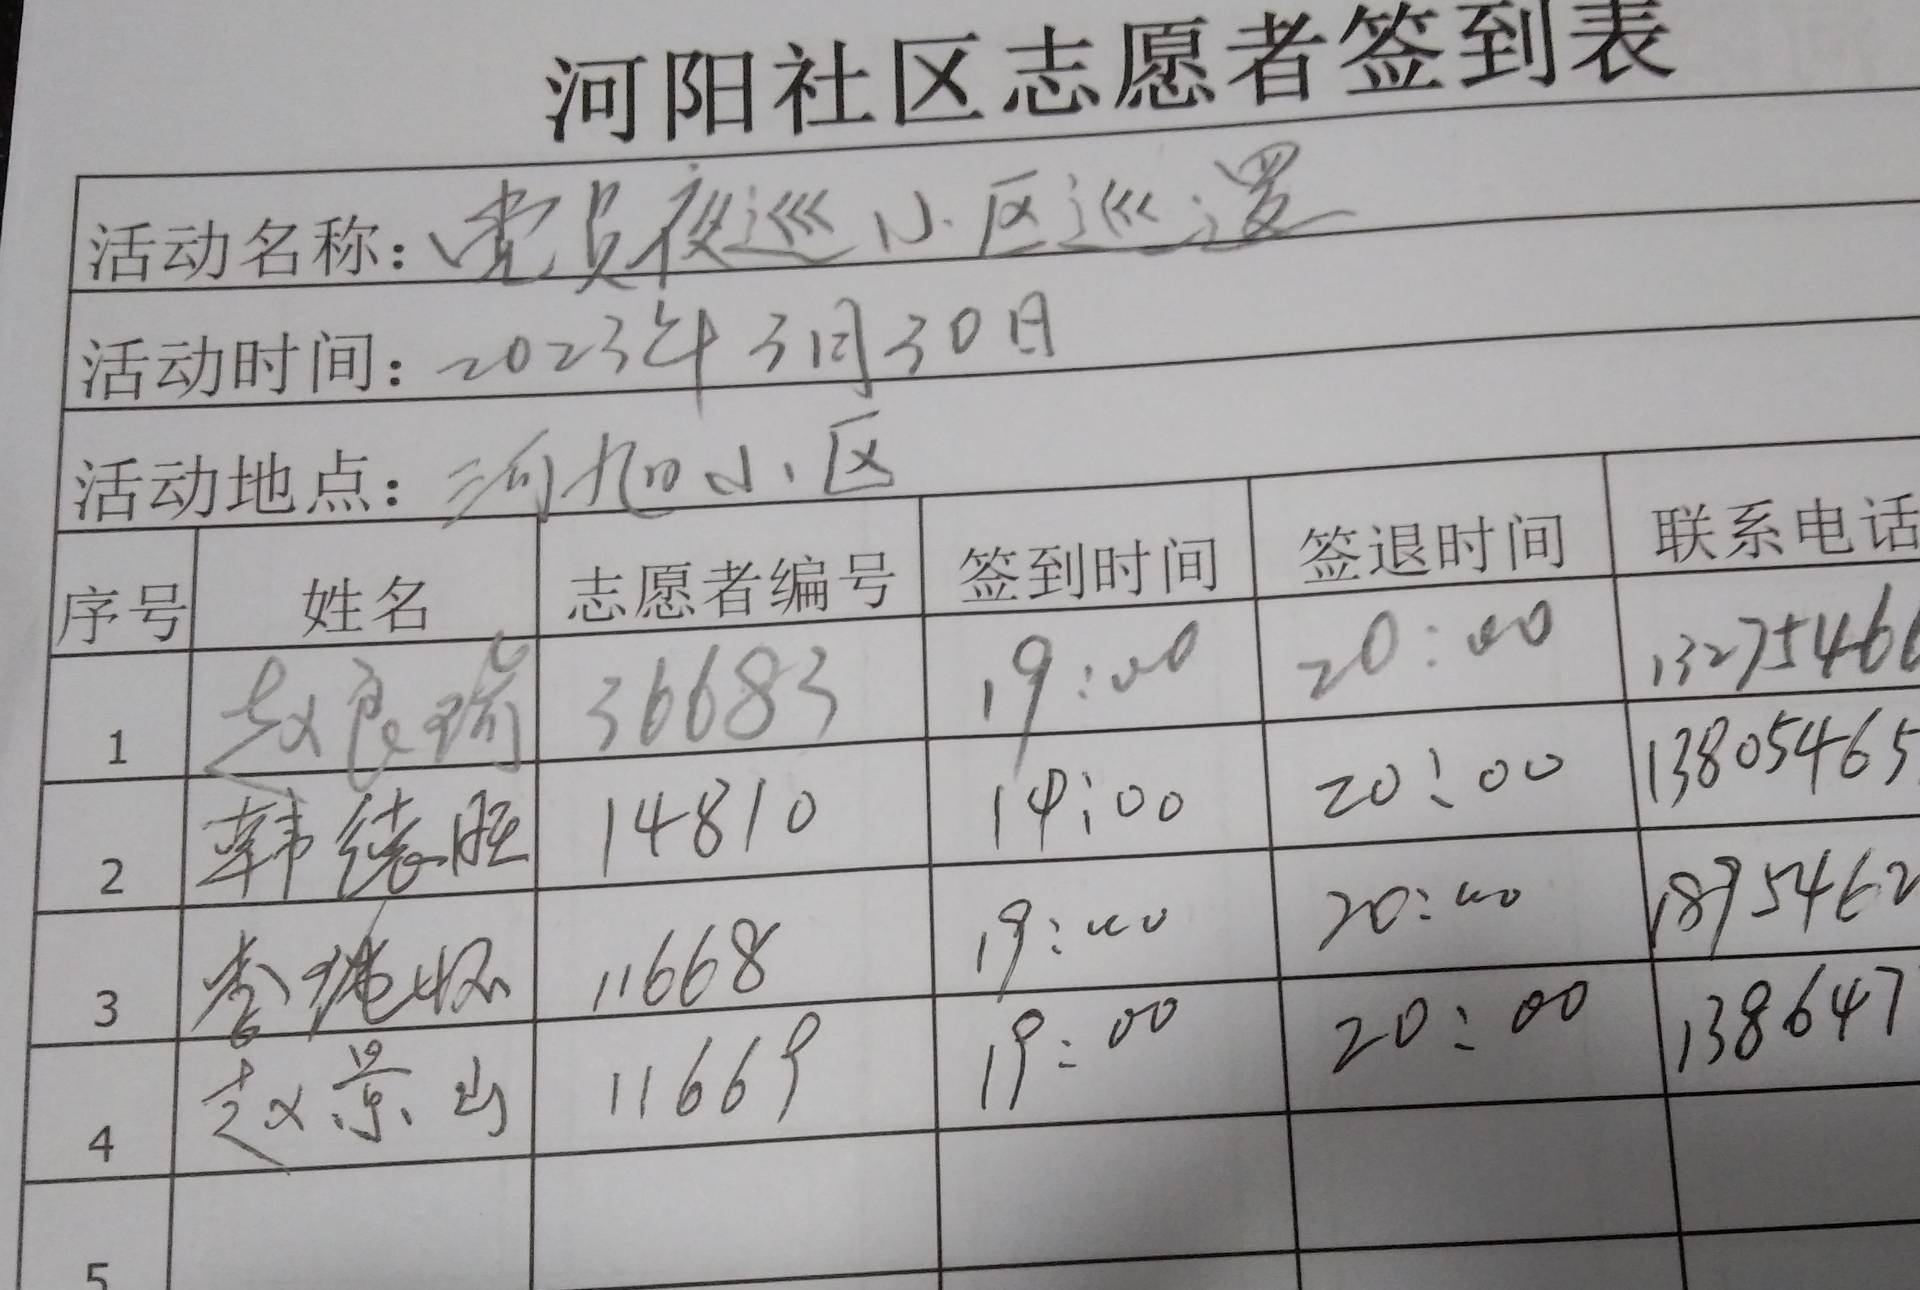 河阳社区志愿者签到表
活动名称：党员夜巡小区巡逻
活动时间：2023年3月30日
活动地点：河阳小区
序号 姓名 志愿者编号 签到时间 签退时间 联系电话
1 赵良瑞 36683 19:00 20:00 13275466
2 韩德胜 14810 19:00 20:00 13805465
3 李 11668 19:00 20:00 1895462
4 赵景山 11669 19:00 20:00 138647
5